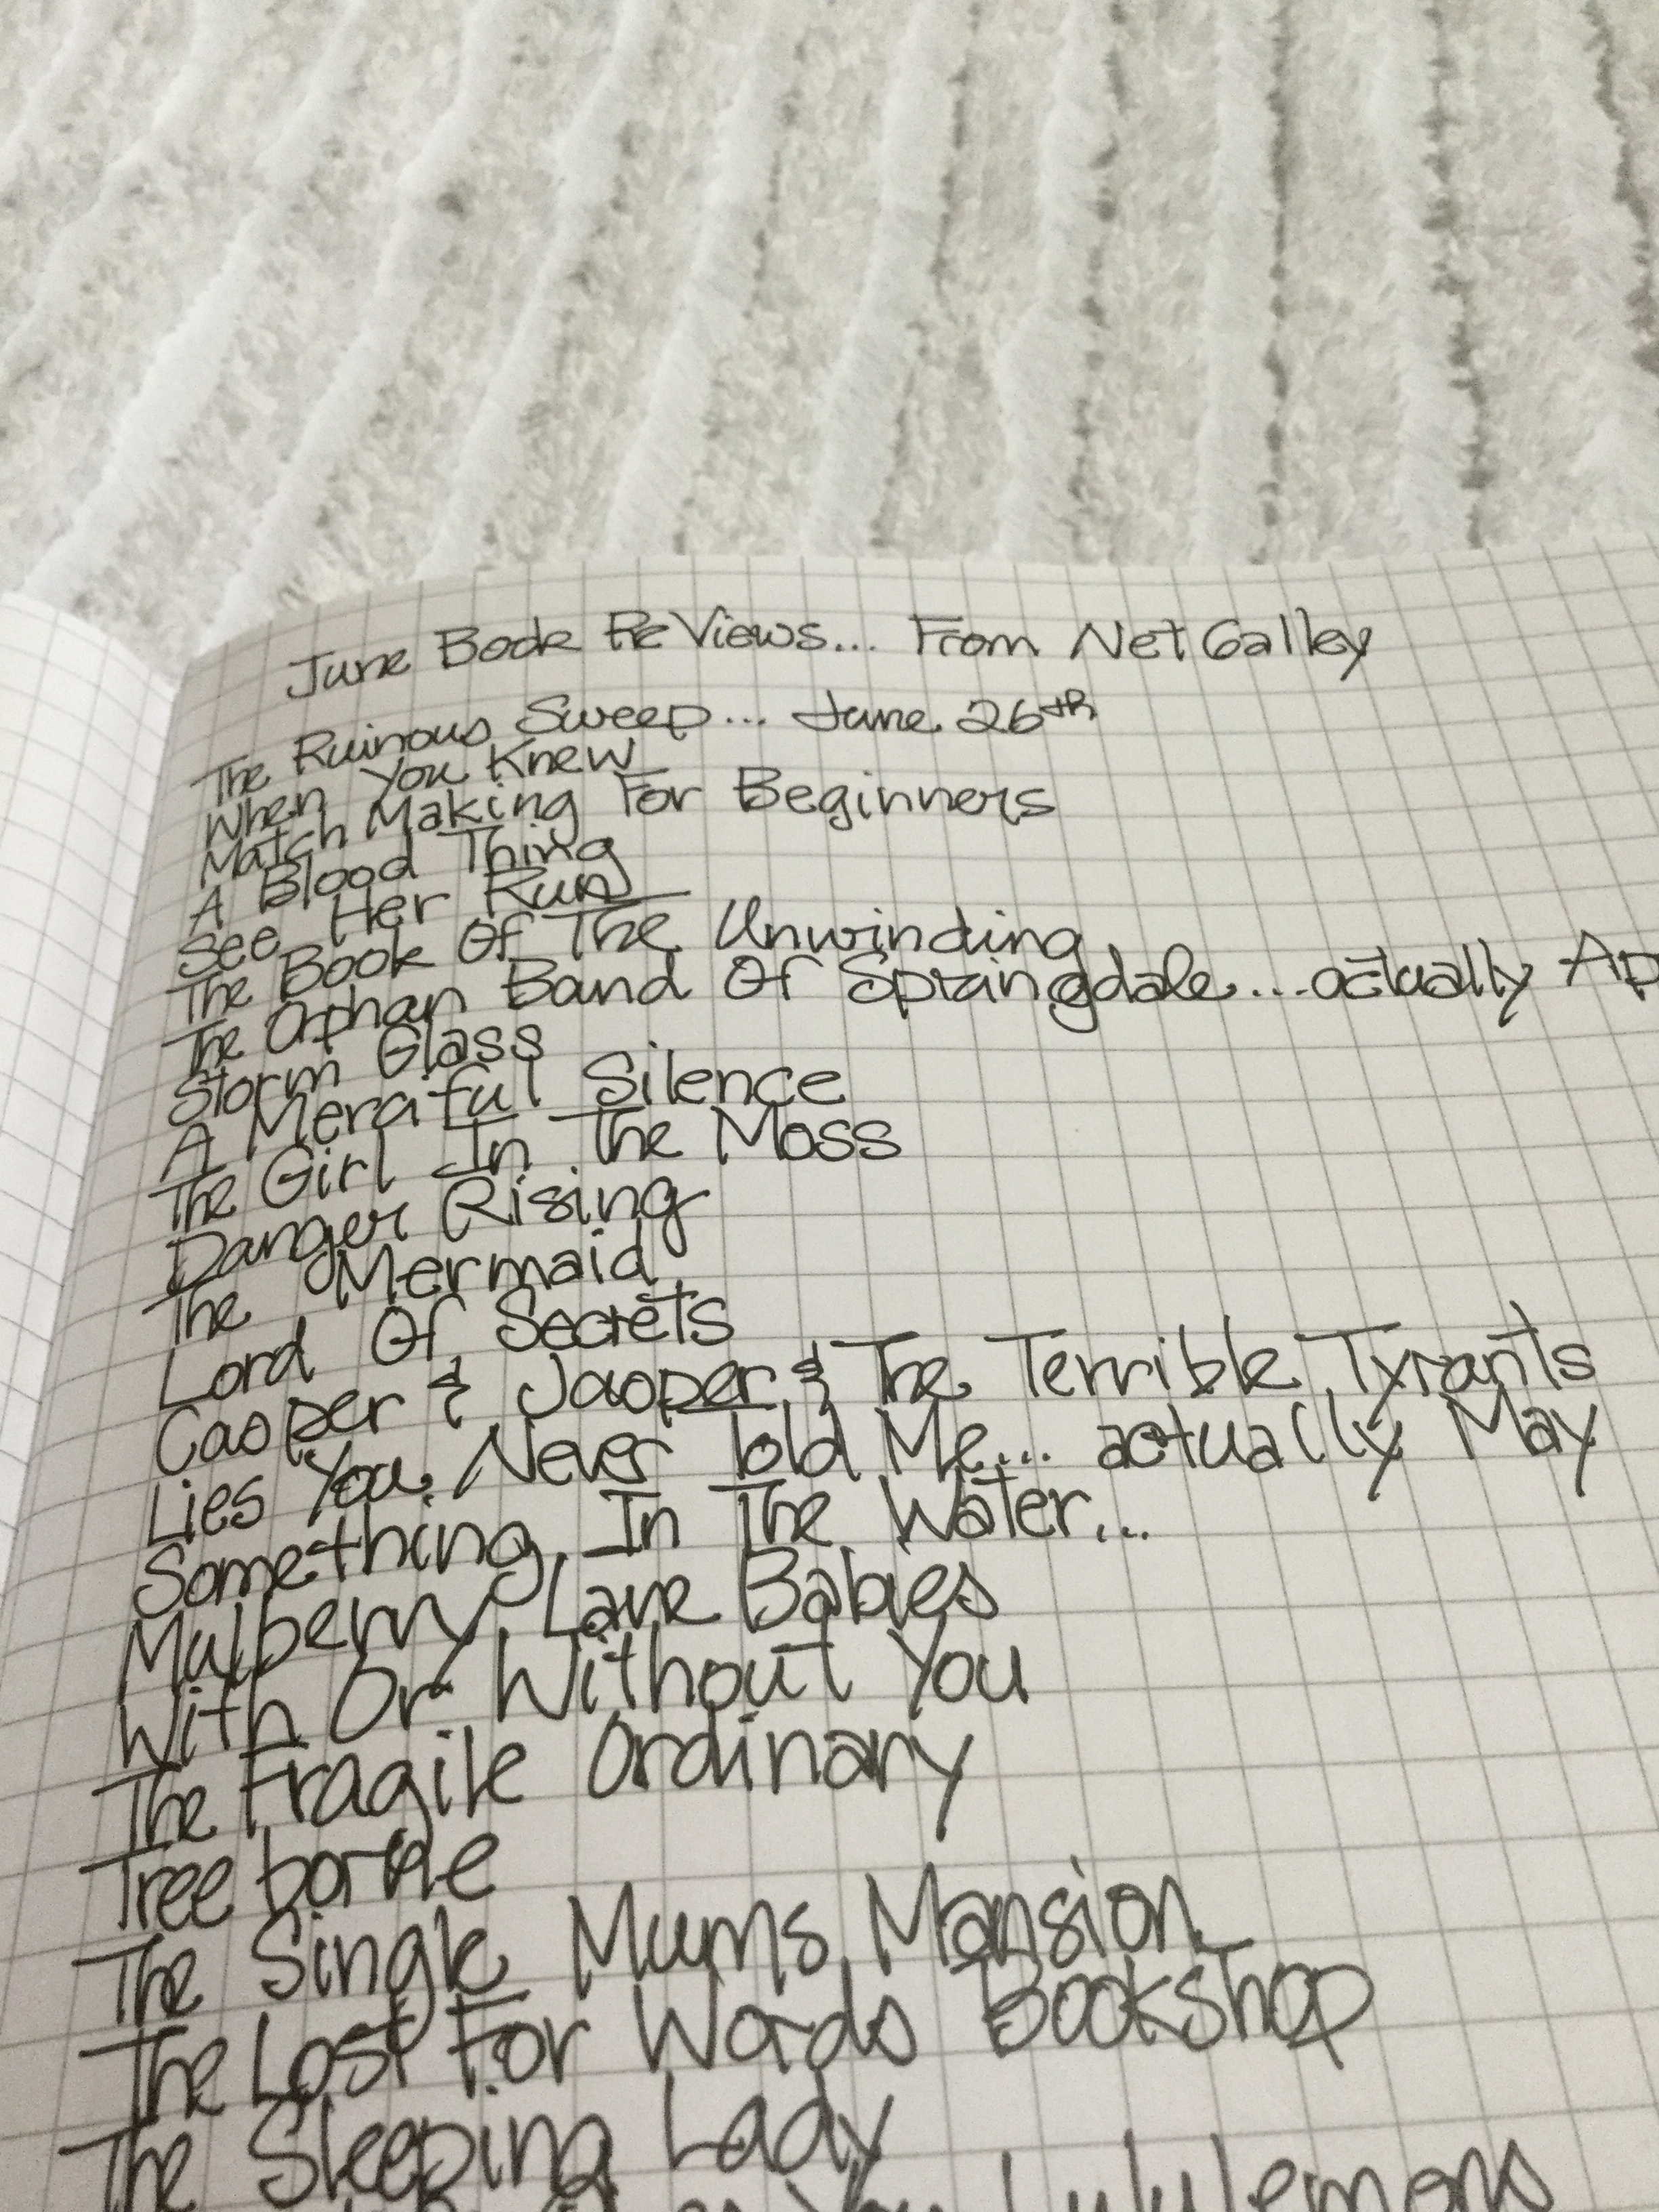 June Book ReViews... From NetGalley
The Ruinous Sweep... June 26th
When You Knew
Match Making For Beginners
A Blood Thing
See Her Run
The Book Of The Unwinding
The Orphan Band Of Springdale...actually Ap
Storm Glass
A Merciful Silence
The Girl In The Moss
Danger Rising
The Mermaid
Lord Of Secrets
Casper & Jasper & The Terrible Tyrants
Lies You Never Told Me... actually May
Something In The Water...
Mulberry Lane Babies
With Or Without You
The Fragile Ordinary
Treeborne
The Single Mums Mansion
The Lost For Words Bookshop
The Sleeping Lady
You Lululemons